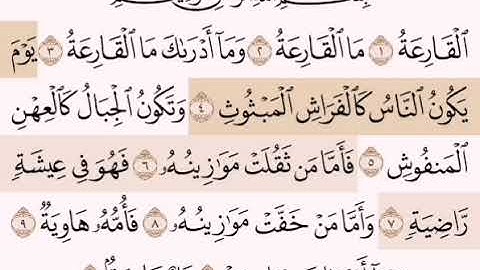 ٱلْقَارِعَةُ ١ مَا ٱلْقَارِعَةُ ٢ وَمَآ أَدْرَىٰكَ مَا ٱلْقَارِعَةُ ٣ يَوْمَ
يَكُونُ ٱلنَّاسُ كَٱلْفَرَاشِ ٱلْمَبْثُوثِ ٤ وَتَكُونُ ٱلْجِبَالُ كَٱلْعِهْنِ
ٱلْمَنفُوشِ ٥ فَأَمَّا مَن ثَقُلَتْ مَوَٰزِينُهُۥ ٦ فَهُوَ فِى عِيشَةٍ
رَّاضِيَةٍ ٧ وَأَمَّا مَنْ خَفَّتْ مَوَٰزِينُهُۥ ٨ فَأُمُّهُۥ هَاوِيَةٌ ٩